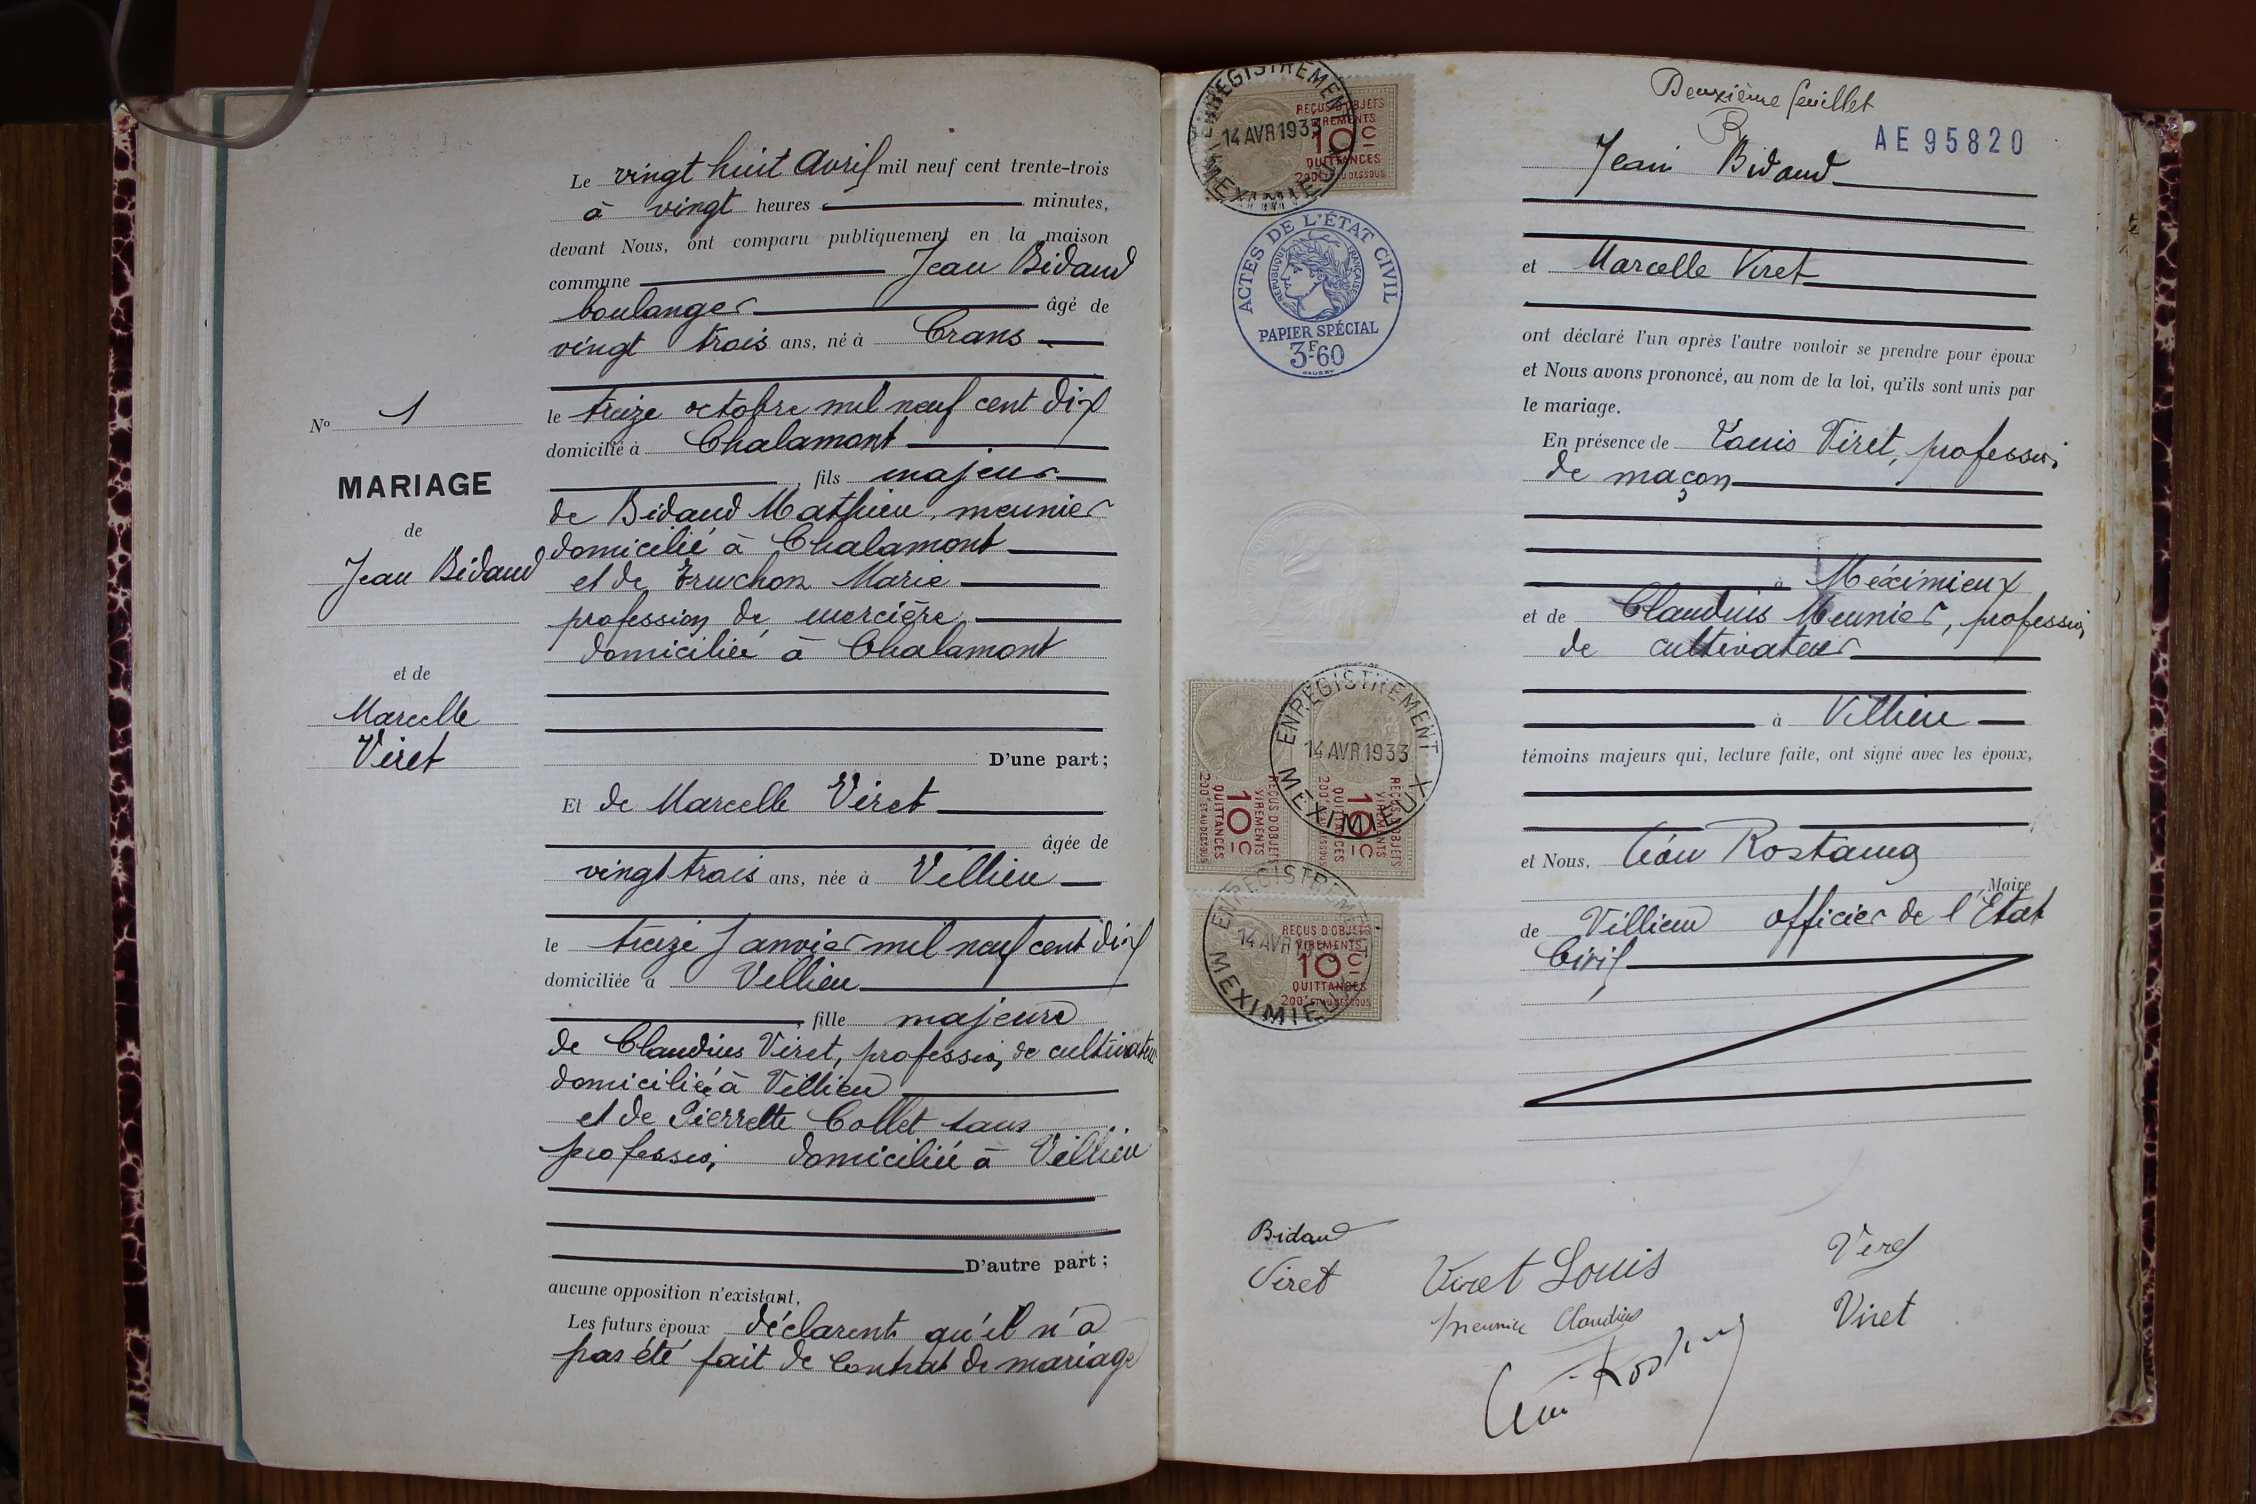 Le vingt huit avril mil neuf cent trente-trois
à vingt heures minutes,
devant Nous, ont comparu publiquement en la maison
commune Jean Bidaud
boulanger âgé de
vingt trois ans, né à Crans
le treize octobre mil neuf cent dix
domicilié à Chalamont
, fils majeur
de Bidaud Mathieu, meunier
domicilié à Chalamont
et de Truchon Marie
profession de mercière
domiciliée à Chalamont
D'une part;
Et de Marcelle Viret
âgée de
vingt trois ans, née à Villieu
le treize Janvier mil neuf cent dix
domiciliée à Villieu
, fille majeure
de Claudius Viret, profession de cultivateur
domicilié à Villieu
et de Pierrette Collet sans
profession domiciliée à Villieu
D'autre part;
aucune opposition n'existant,
Les futurs époux déclarent qu'il n'a
pas été fait de contrat de mariage
No 1
MARIAGE
de
Jean Bidaud
et de
Marcelle
Viret
Deuxième feuillet
AE 95820
Jean Bidaud
et Marcelle Viret
ont déclaré l'un après l'autre vouloir se prendre pour époux
et Nous avons prononcé, au nom de la loi, qu'ils sont unis par
le mariage.
En présence de Louis Viret, profession
de maçon
à Méximieux
et de Claudius Meunier, profession
de cultivateur
à Villieu
témoins majeurs qui, lecture faite, ont signé avec les époux,
et Nous, Léon Rostaing
Maire
de Villieu officier de l'Etat
Civil
Bidaud
Viret
Viret Louis
meunier Claudius
Viret
Viret
Léon Rostaing
ENREGISTREMENT
14 AVR 1933
MEXIMIEUX
REÇUS D'OBJETS
VIREMENTS
10 C
QUITTANCES
200F ET AU DESSOUS
ACTES DE L'ÉTAT CIVIL
RÉPUBLIQUE FRANÇAISE
PAPIER SPÉCIAL
3F-60
ENREGISTREMENT
14 AVR 1933
MEXIMIEUX
REÇUS D'OBJETS
VIREMENTS
10 C
QUITTANCES
200F ET AU DESSOUS
REÇUS D'OBJETS
VIREMENTS
10 C
QUITTANCES
ENREGISTREMENT
14 AVR
MEXIMIEUX
REÇUS D'OBJETS
VIREMENTS
10 C
QUITTANCES
200F ET AU DESSOUS